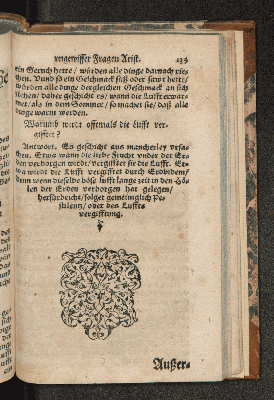 ungewisser Fragen Arist. 134
ein Geruch hette / würden alle dinge darnach rie
chen. Vnd so ein Geschmack süß oder sawr hette /
würden alle dinge dergleichen Geschmack an sich
ziehen / daher geschicht es / wann die Lufft erwär
met / als in dem Sommer / so machet sie / daß alle
dinge warm werden.
Warumb wirdt offtmals die Lufft ver-
gifftet?
Antwort. Es geschicht aus mancherley vrsa
chen. Etwa wann die liebe Frucht vnder der Er
den verborgen wirdt / vergifftet sie die Lufft. Et
wa wirdt die Lufft vergifftet durch Erdbidem /
denn wenn dieselbe böse lufft lange zeit in den Hö
len der Erden verborgen hat gelegen /
herfürbricht / folget gemeinglich Pe
stilentz / oder den Luffts
vergifftung.
Außer-